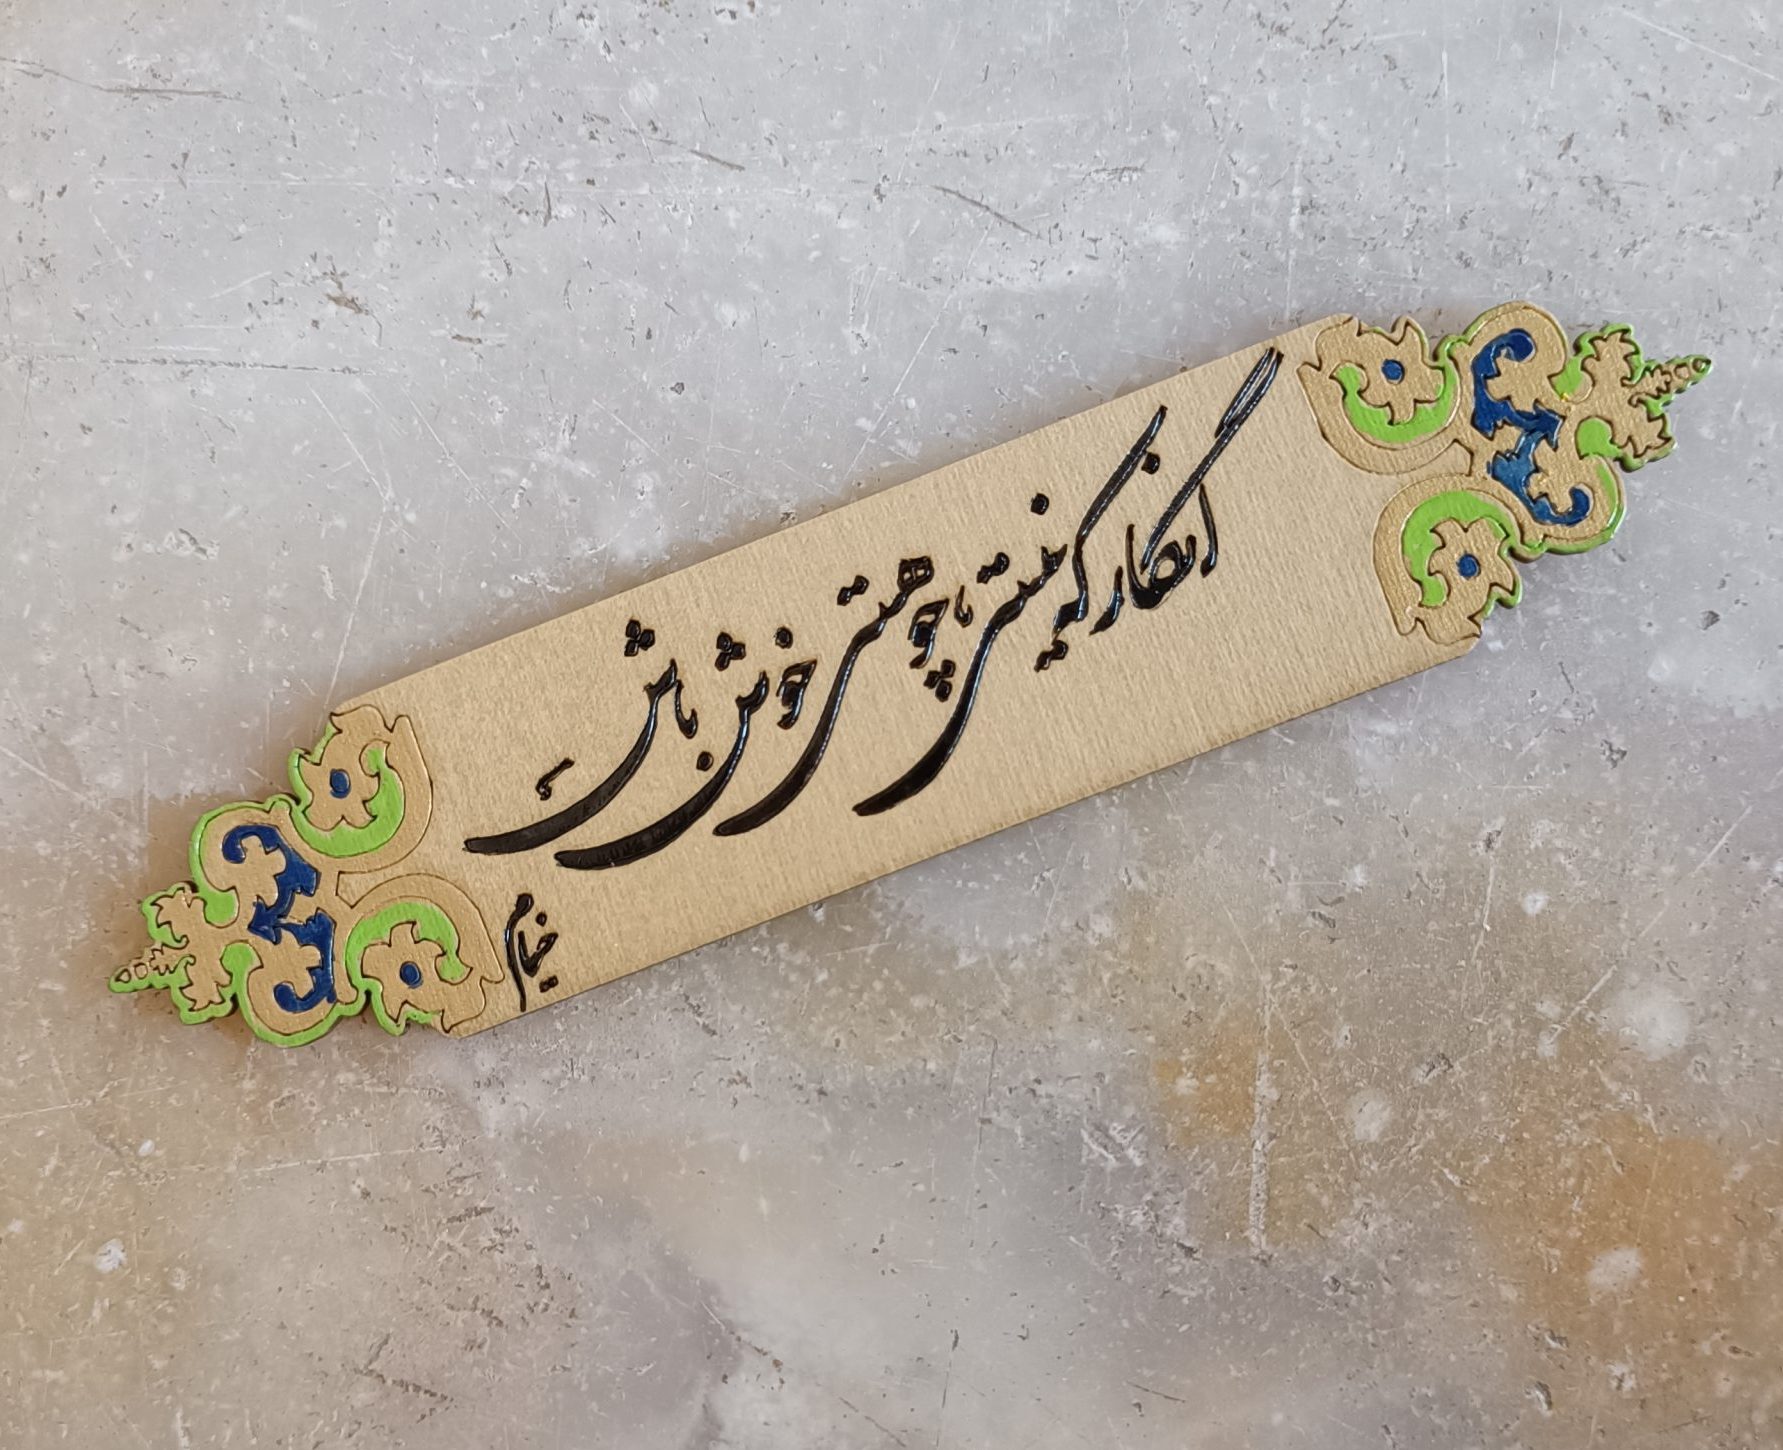 انگار که نیستی چو هستی خوش باش
خیام